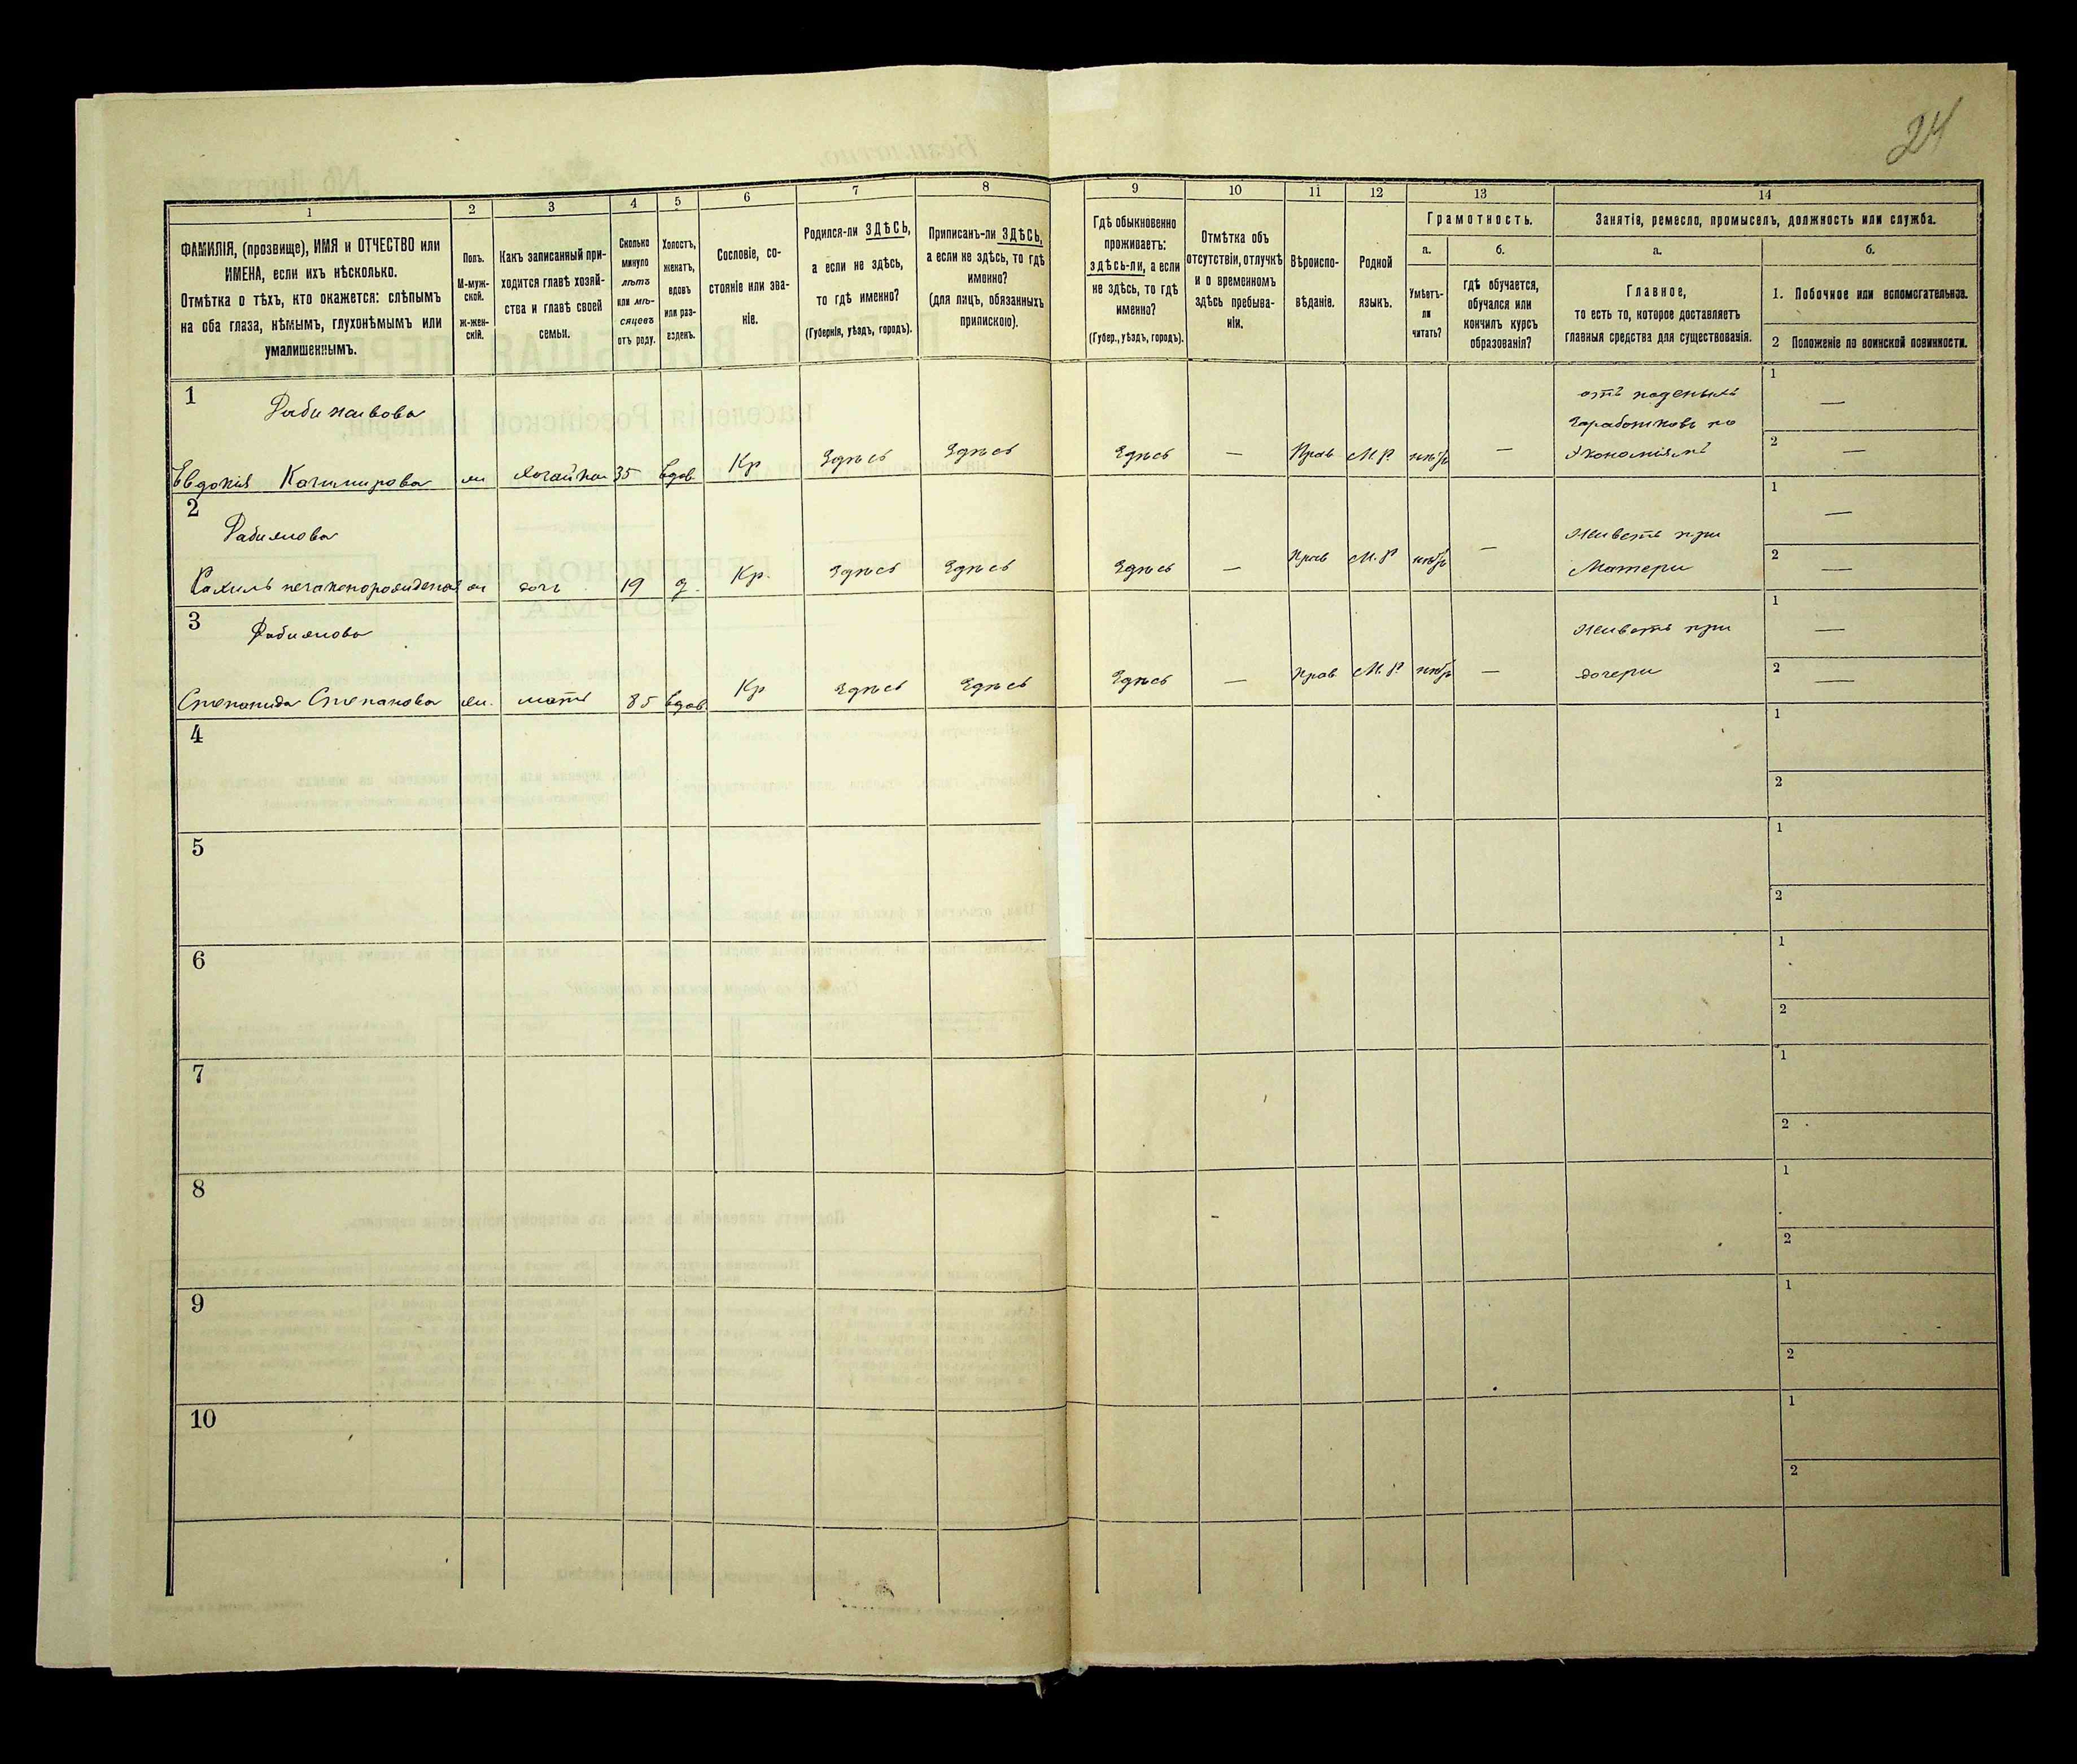 24
1
2
3
4
5
6
7
8
9
10
11
12
13
14
ФАМИЛІЯ, (прозвище), ИМЯ и ОТЧЕСТВО или
ИМЕНА, если ихъ нѣсколько.
Отмѣтка о тѣхъ, кто окажется: слѣпымъ
на оба глаза, нѣмымъ, глухонѣмымъ или
умалишеннымъ.
Полъ.
М-муж-
ской.
Ж-жен-
скій.
Какъ записанный при-
ходится главѣ хозяй-
ства и главѣ своей
семьи.
Сколько
минуло
лѣтъ
или мѣ-
сяцевъ
отъ роду.
Холостъ,
женатъ,
вдовъ
или раз-
веденъ.
Сословіе, со-
стояніе или зва-
ніе.
Родился-ли ЗДѢСЬ,
а если не здѣсь,
то гдѣ именно?
(Губернія, уѣздъ, городъ).
Приписанъ-ли ЗДѢСЬ,
а если не здѣсь, то гдѣ
именно?
(для лицъ, обязанныхъ
припискою).
Гдѣ обыкновенно
проживаетъ:
здѣсь-ли, а если
не здѣсь, то гдѣ
именно?
(Губер., уѣздъ, городъ).
Отмѣтка объ
отсутствіи, отлучкѣ
и о временномъ
здѣсь пребыва-
ніи.
Вѣроиспо-
вѣданіе.
Родной
языкъ.
Грамотность.
а.
Умѣетъ-
ли
читать?
б.
гдѣ обучается,
обучался или
кончилъ курсъ
образованія?
Занятія, ремесло, промыселъ, должность или служба.
а.
Главное,
то есть то, которое доставляетъ
главныя средства для существованія.
б.
1. Побочное или вспомогательное.
2 Положеніе по воинской повинности.
1
Евдокія 35 вдов. Кр Здѣсь Здѣсь Здѣсь — Прав М.Р. нѣтъ —
отъ
заработковъ по
экономіямъ
1 —
2 —
2 Фабиянова
дочь 19 д. Кр. Здѣсь Здѣсь Здѣсь — Прав М.Р. нѣтъ —
Живетъ при
Матери
1 —
2 —
3 Фабиянова
Степанида Степанова ж. мать 85 вдов. Кр Здѣсь Здѣсь Здѣсь — Прав М.Р. нѣтъ —
Живетъ при
дочери
1 —
2 —
4
1
2
5
1
2
6
1
2
7
1
2
8
1
2
9
1
2
10
1
2